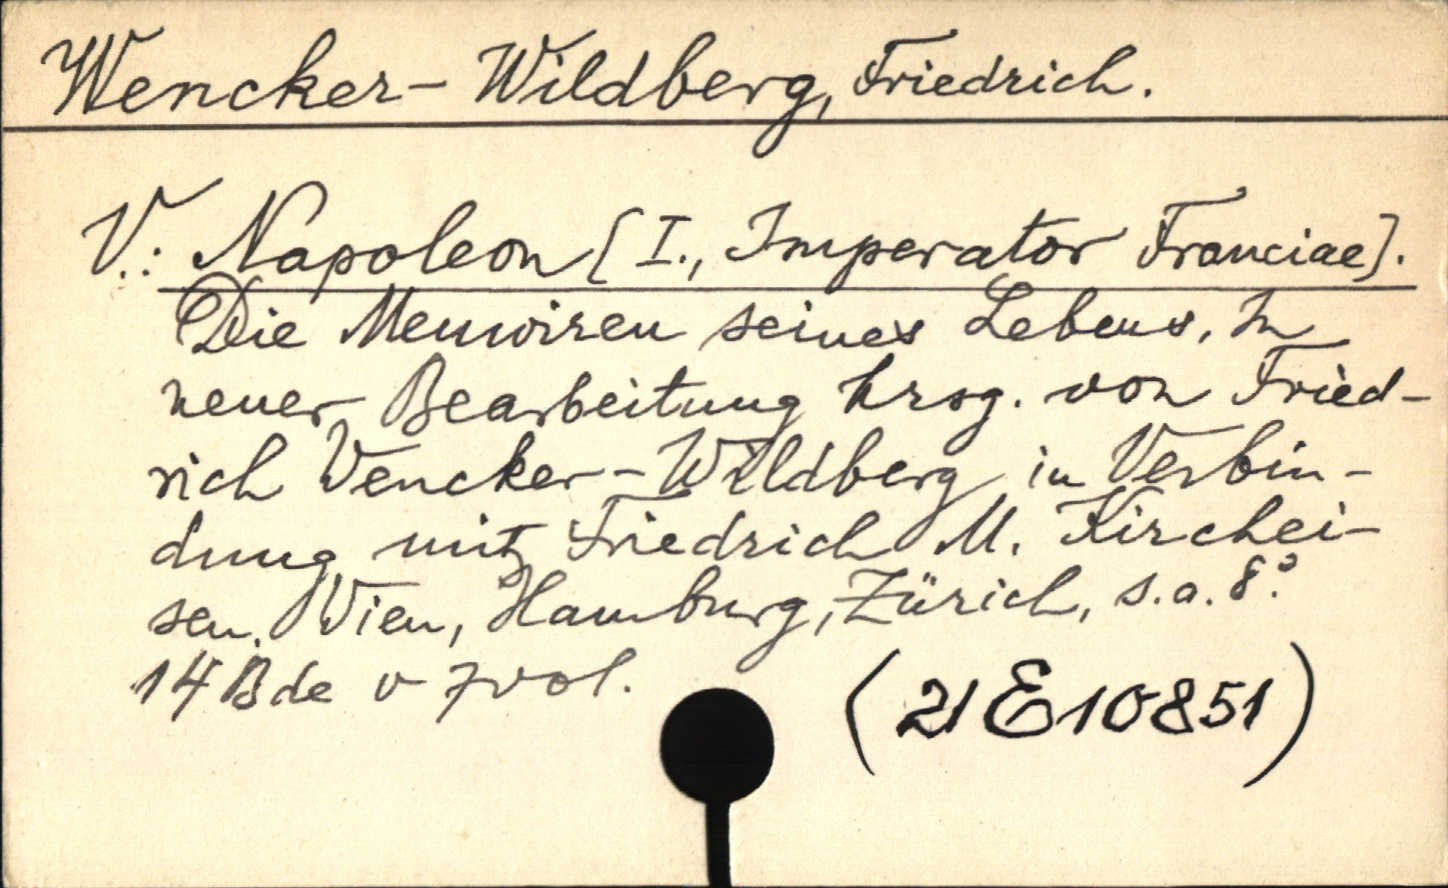 Wencker-Wildberg, Friedrich.
V.: Napoleon [I., Imperator Franciae].
Die Memoiren seines Lebens. In
neuer Bearbeitung hrsg. von Fried-
rich Wencker-Wildberg in Verbin-
dung mit Friedrich M. Kirchei-
sen. Wien, Hamburg, Zürich, s.a. 8°.
14 Bde v 7 vol.
(21 E 10851)